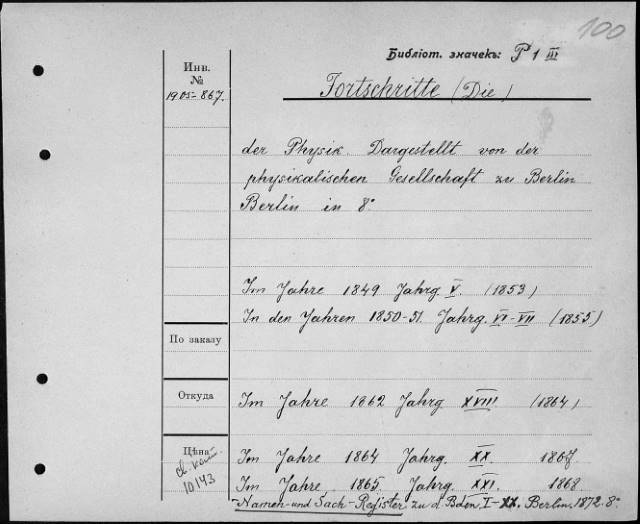 100
Библіот. значекъ: P 1 III
Инв.
№
1905-867.
Fortschritte (Die)
der Physik. Dargestellt von der
physikalischen Gesellschaft zu Berlin
Berlin in 8°
Im Jahre 1849 Jahrg. V. (1853)
In den Jahren 1850-51. Jahrg. VI-VII (1855)
По заказу
Откуда
Im Jahre 1862 Jahrg. XVIII (1864)
Цѣна
10143
Im Jahre 1864 Jahrg. XX. 1867.
Im Jahre 1865 Jahrg. XXI. 1868.
Namen- und Sach-Register zu d. Bden. I-XX. Berlin, 1872. 8°